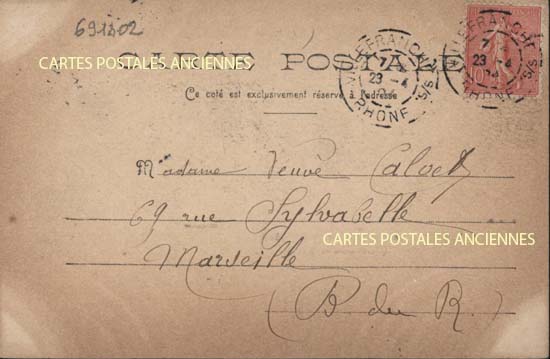 691802
CARTE POSTALE
CARTES POSTALES ANCIENNES
Ce côté est exclusivement réservé à l'adresse
VILLEFRANCHE S/S
7
23 - 4
04
RHONE
VILLEFRANCHE S/S
7
23 - 4
04
RHONE
10
Madame Veuve Calvet
69 rue Sylvabelle
CARTES POSTALES ANCIENNES
Marseille
(B. du R.)